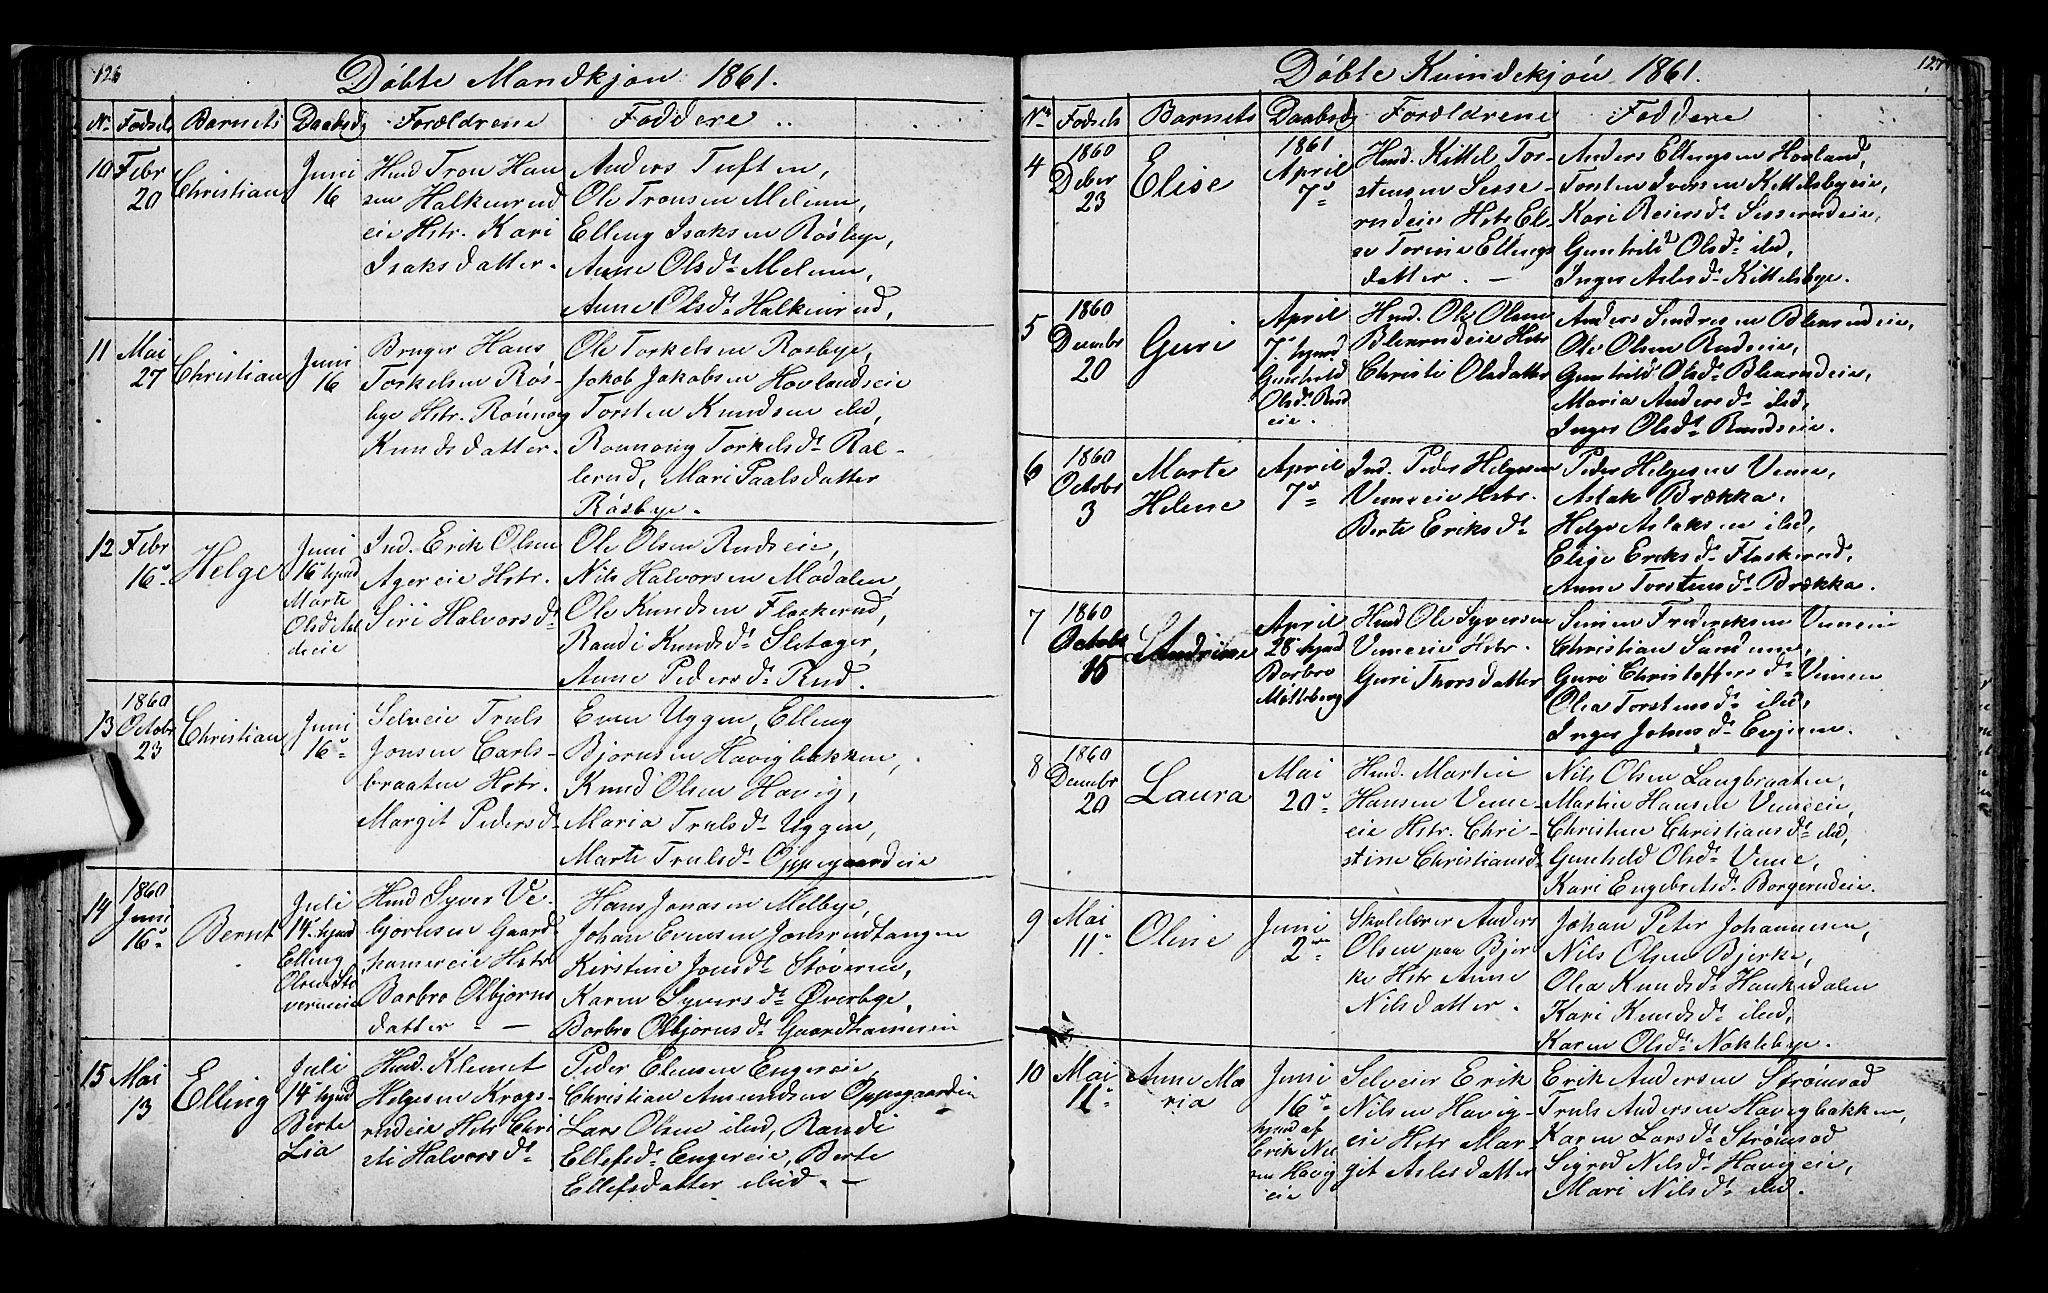 126
Døbte Mandkjøn 1861.
No Fødsels Barnets Daabsdg Forældrene Faddere
10 Febr 20 Christian Juni 16
Husmd Tron Han
sen Halkinrud
eie Hstr. Kari
Isaksdatter.
Anders Tuften,
Ole Tronsen Melum,
Elling Isaksen Røsbye,
Anne Olsdr Melum,
Anne Olsdr Halkinrud,
11 Mai 27 Christian Juni 16
Bruger Hans
Torkelsen Røs-
bye Hstr. Rønnog
Knudsdatter.
Ole Torkelsen Rosbye,
Jakob Jakobsen Hovlandseie
Torsten Knudsen ibid,
Rønnoug Torkelsdr Ral-
lerud, Mari Paalsdatter
Røsbye.
12 Febr 16 Helge
Juni
16 hjmd
Marte
Olsdr
deie
Ind. Erik Olsen
Agereie Hstr.
Siri Halvorsdr
Ole Olsen Rudseie,
Nils Halvorsen Modalen,
Ole Knudsen Flaskerud,
Randi Knudsdr Sletager,
Anne Pedersdr Rud.
13 1860 Octobr 23 Christian Juni 16
Selveie Truls
Jonsen Carls-
braaten Hstr.
Margit Pedersd
Even Uggen, Elling
Bjørnsen Havigbakken,
Knud Olsen Havig,
Maria Trulsdr Uggen,
Marte Trulsdr Oppegaardeie
14 1860 Juni 16 Bernt
Juli
14 hjmd
Elling
Olsen Stø
verneie
Husmd Syver Ve-
bjørnsen Gaard
hamereie Hstr
Barbro Asbjørns
datter -
Hans Jonasen Melbye,
Johan Evensen Jodsrudtangen
Kirstine Jonsdr Støverne,
Karen Syversdr Øverbye,
Barbro Asbjørnsdr Gaardhamereie
15 Mai 13 Elling
Juli
14 hjmd
Berte
Lia
Husmd. Klemet
Helgesen Krogs-
rudeie Hstr Chri
sti Halvorsdr
Peder Elensen Engereie,
Christian Amundsen Oppegaardeie
Lars Olsen ibid, Randi
Ellefsdr Engereie, Berte
Ellefsdatter ibid. -
127
Døbte Kvindekjøn 1861.
No Fødsels Barnets Daabsdg Forældrene Faddere
4 1860 Dcber 23 Elise 1861 April 7
Husmd. Kittel Tor-
stensen Sesse-
rudeie Hstr El-
se Torine Ellings
datter. -
Anders Ellingsen Hovland,
Torsten Iversen Kittelsbyeie,
Kari Reiersdr Sesserudeie,
Gunhild Olsdr ibid,
Inger Aslesdr Kittelsbye.
5 1860 Decembr 20 Guri
April
7 hjmd
Gunhild
Olsdr Rud
eie.
Husmd. Ole Olsen
Blexrudeie Hstr
Christi Olsdatter
Anders Sendresen Blexrudeie,
Ole Olsen Rudeie,
Gunhild Olsdr Blexrudeie,
Maria Andersdr ibid,
Inger Olsdr Rudseie.
6 1860 Octobr 3 Marte Helene April 7
Ind. Peder Helgesen
Vemeeie Hstr.
Berte Eriksdr
Peder Helgesen Veme,
Aslak Brækka,
Helge Aslaksen ibid,
Elise Eriksdr Flaskerud,
Anne Torstensdr Brækka.
7 1860 Octobr 15 Andrine
April
28 hjmd
Barbro
Mølteberg
Husmd Ole Syversen
Vemeeie Hstr.
Guri Thorsdatter
Simen Frederiksen Vemeeie
Christian Sandum,
Guri Christoffersdr Veme
Olea Torstensdr ibid,
Inger Johnsdr Evjene.
8 1860 Decmbr 20 Laura Mai 20
Husmd. Martin
Hansen Veme-
eie Hstr. Chri-
stine Christiansdr
Nils Olsen Langbraaten,
Martin Hansen Vemeeie,
Christine Christiansdr ibid,
Gunhild Olsdr Veme,
Kari Engebretsdr Borgerudeie.
9 Mai 11 Oline Juni 2
Skolelærer Anders
Olsen paa Bjer
ke Hstr Anne
Nilsdatter.
Johan Peter Johannesen,
Nils Olsen Bjerke,
Olea Knudsdr Haukedalen
Kari Knudsdr ibid,
Karen Olsdr Noklebye.
10 Mai 11 Anne Ma
ria
Juni
16
hjmd af
Erik Nil
sen Havig
eie
Selveier Erik
Nilsen Havig-
eie Hstr Mar-
git Aslesdatter
Erik Andersen Strømsod
Truls Andersen Havigbakken,
Karen Larsdr Strømsod
Sigred Nilsdr Havigeie,
Mari Nilsdr ibid.